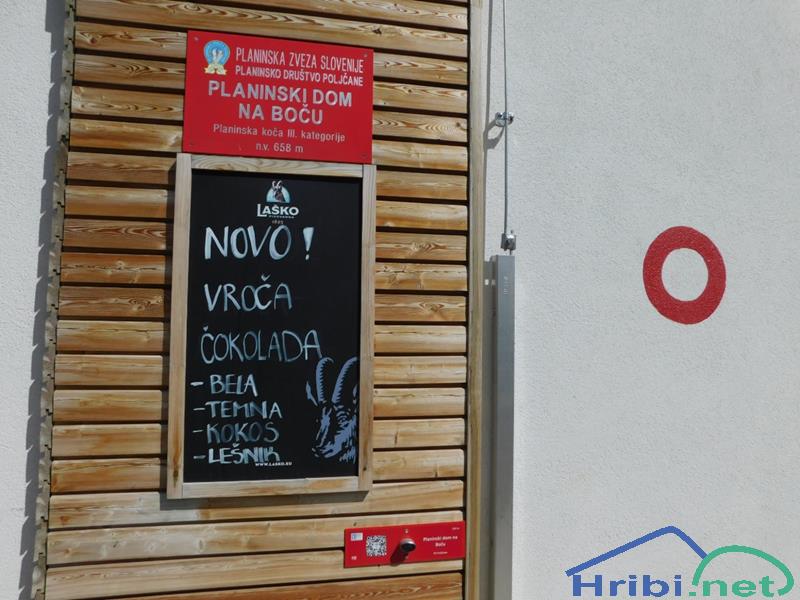 PLANINSKA ZVEZA SLOVENIJE
PLANINSKO DRUŠTVO POLJČANE
PLANINSKI DOM
NA BOČU
Planinska koča III. kategorije
n.v. 658 m
LAŠKO
PIVOVARNA
1825
NOVO !
VROČA
ČOKOLADA
- BELA
- TEMNA
- KOKOS
- LEŠNIK
WWW.LASKO.EU
Planinski dom na
Boču
Hribi.net